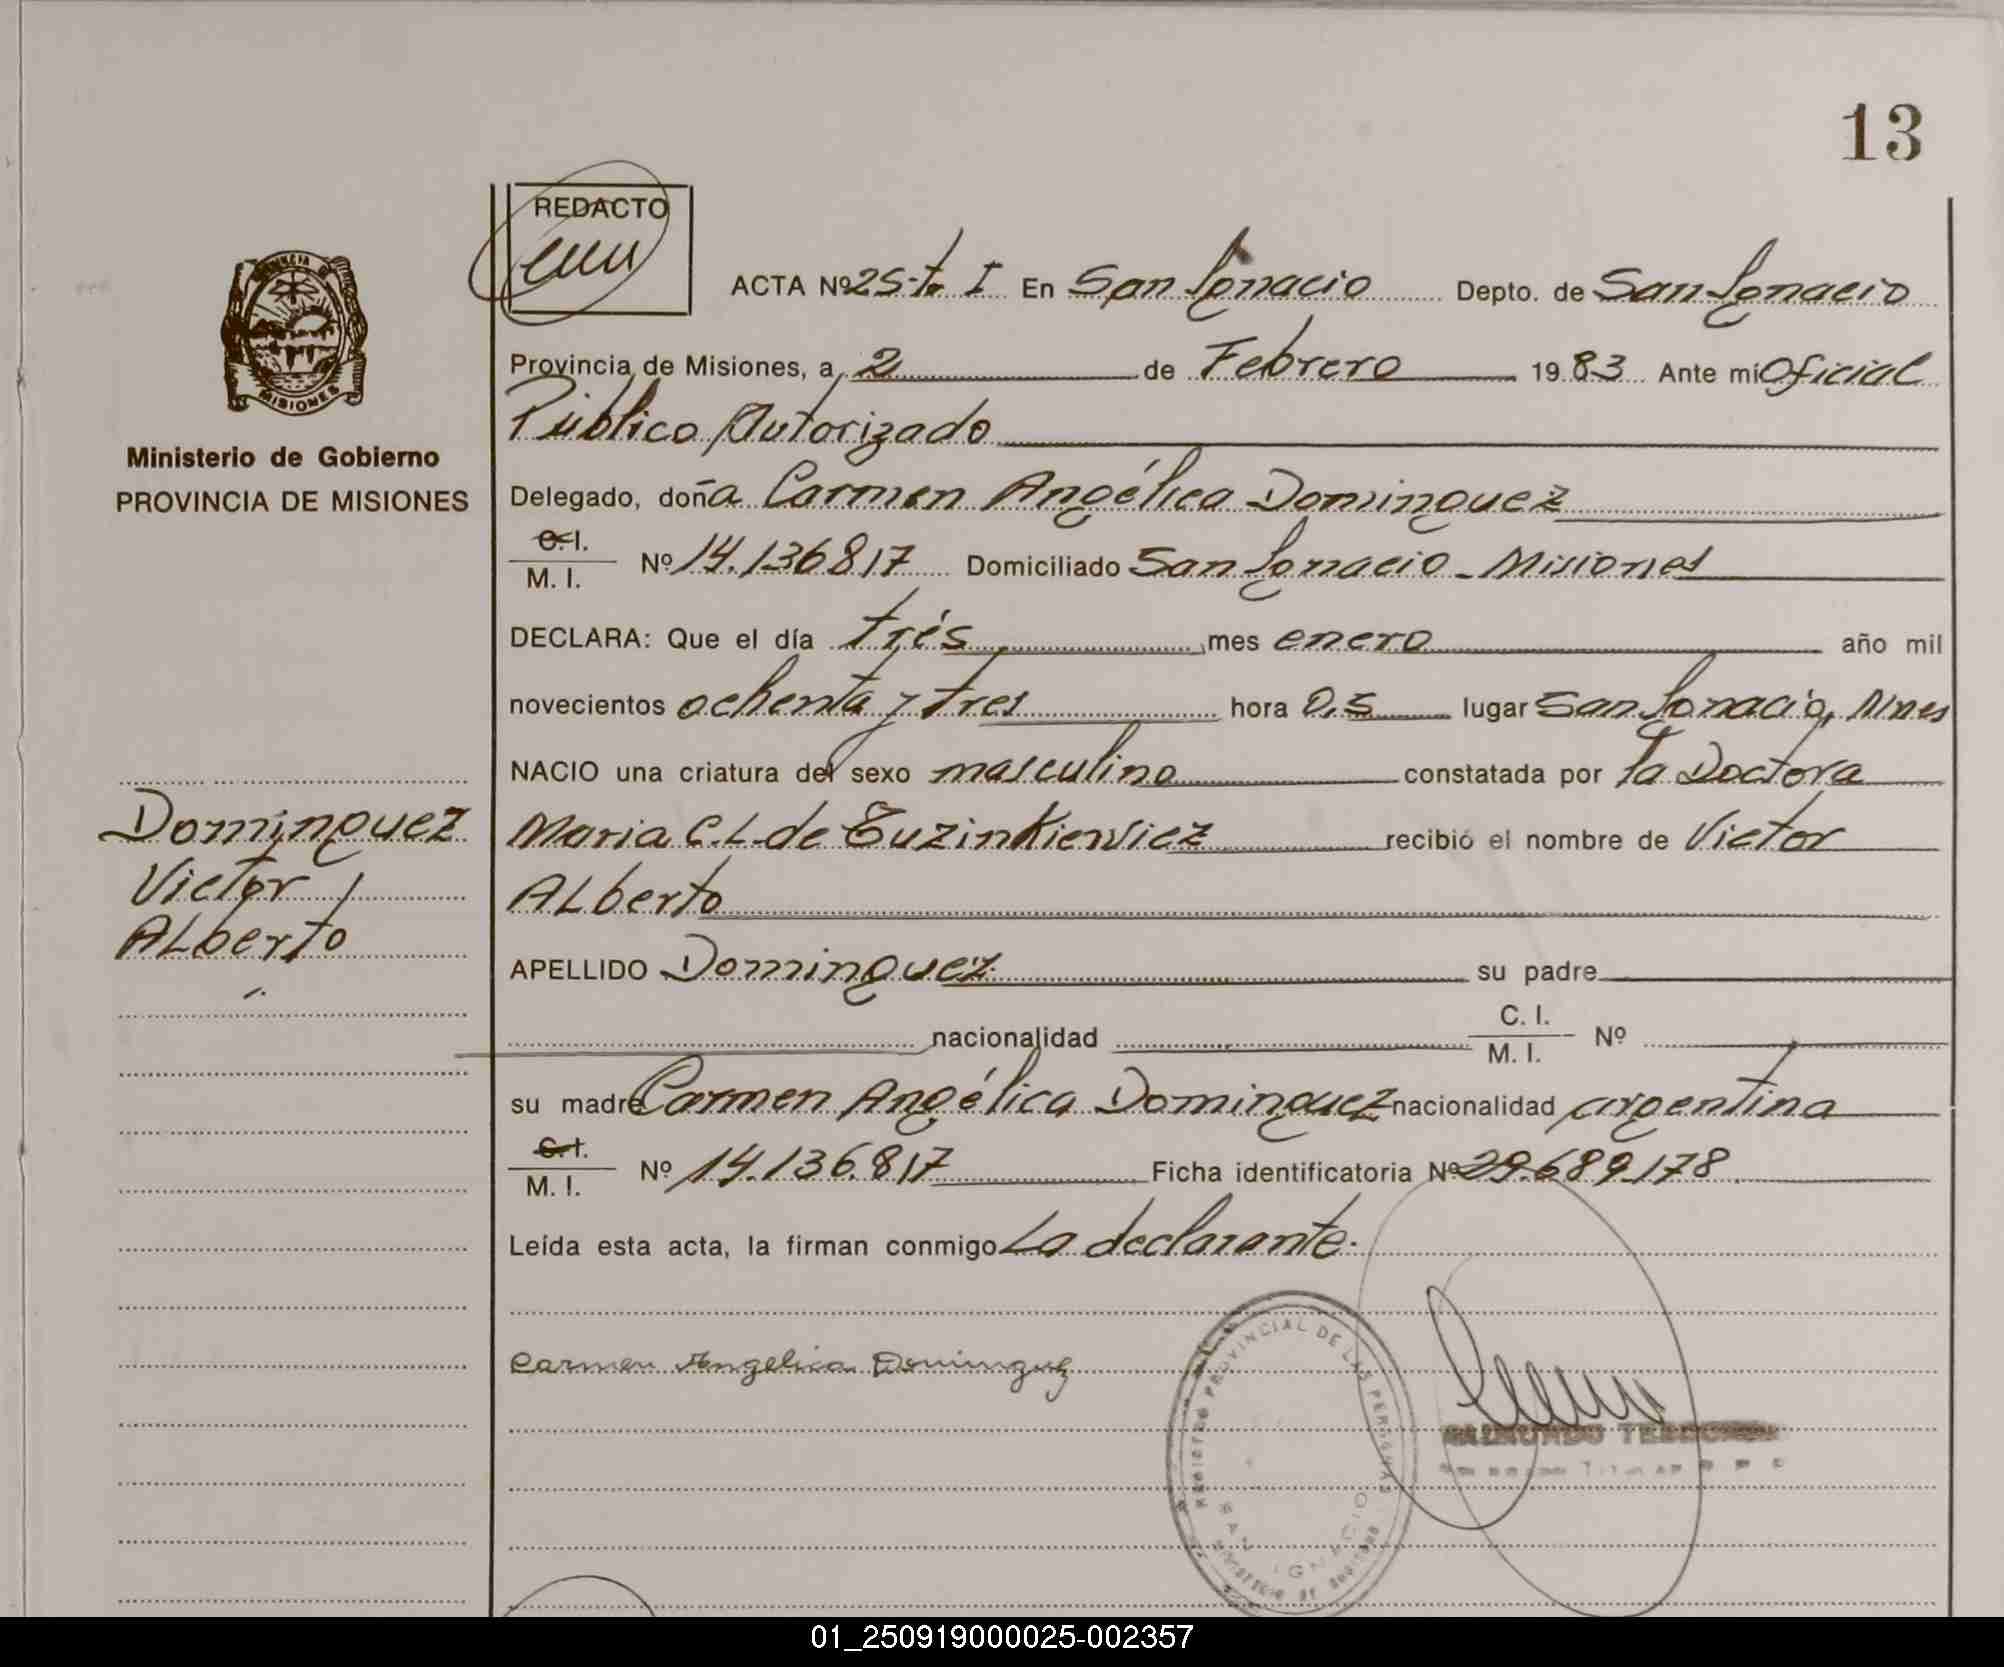 13
REDACTO
ACTA Nº 25-to. I En San Ignacio Depto. de San Ignacio
Provincia de Misiones, a 2 de Febrero 1983 Ante mí Oficial
Público Autorizado
Delegado, doña Carmen Angélica Dominguez
C. I.
M. I. Nº 14.136.817 Domiciliado San Ignacio - Misiones
DECLARA: Que el día trés mes enero año mil
novecientos ochenta y tres hora 0,5 lugar San Ignacio, Mnes
NACIO una criatura del sexo masculino constatada por la Doctora
Maria C. L. de Tuzinkievicz recibió el nombre de Victor
Alberto
APELLIDO Dominguez su padre
nacionalidad C. I.
M. I. Nº
su madre Carmen Angélica Dominguez nacionalidad argentina
C. I.
M. I. Nº 14.136.817 Ficha identificatoria Nº 29.689.178
Leída esta acta, la firman conmigo La declarante.
Carmen Angelica Dominguez
PROVINCIA DE
MISIONES
Ministerio de Gobierno
PROVINCIA DE MISIONES
Dominguez
Victor
Alberto
REGISTRO PROVINCIAL DE LAS PERSONAS
SAN IGNACIO
MINISTERIO DE GOBIERNO
RAIMUNDO
01_250919000025-002357